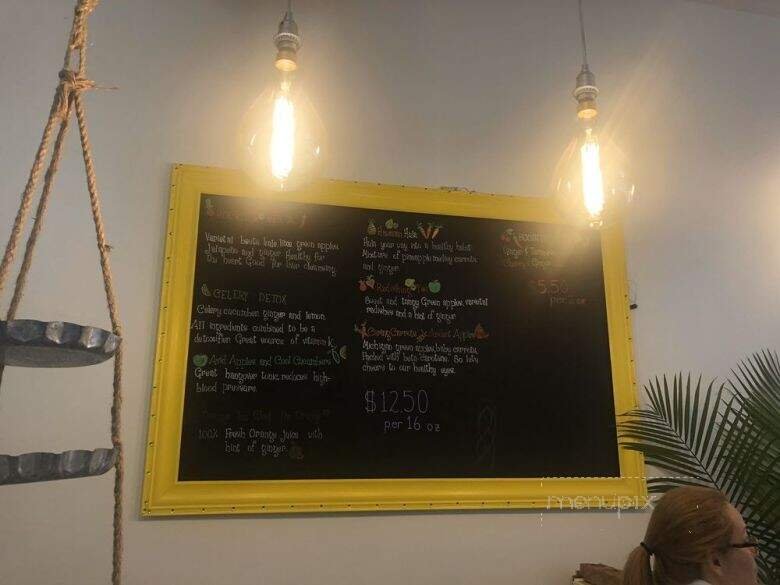 Varietal beets kale lime green apples
Jalapeño and ginger Healthy for
the heart Good for liver cleansing.
CELERY DETOX
Celery cucumber ginger and lemon.
All ingredients combined to be a
detoxifier. Great source of vitamin k.
Acid Apples and Cool Cucumbers
Great hangover tonic reduces high-
blood pressure.
100% Fresh Orange Juice with
hint of ginger.
Hawaiian
your way into a healthy habit.
Mixture of pineapple medley carrots
and ginger
Sweet and tangy Green apples, varietal
radishes and a hint of ginger
Apples
Michigan green apples, baby carrots.
Packed with beta "carotene." So lets
cheers to our healthy eyes.
$12.50
per 16 oz
$5.50
menupix